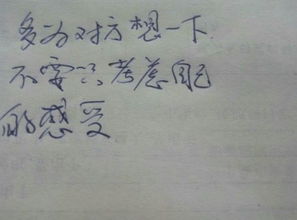 多为对方想一下
不要只考虑自己
的感受